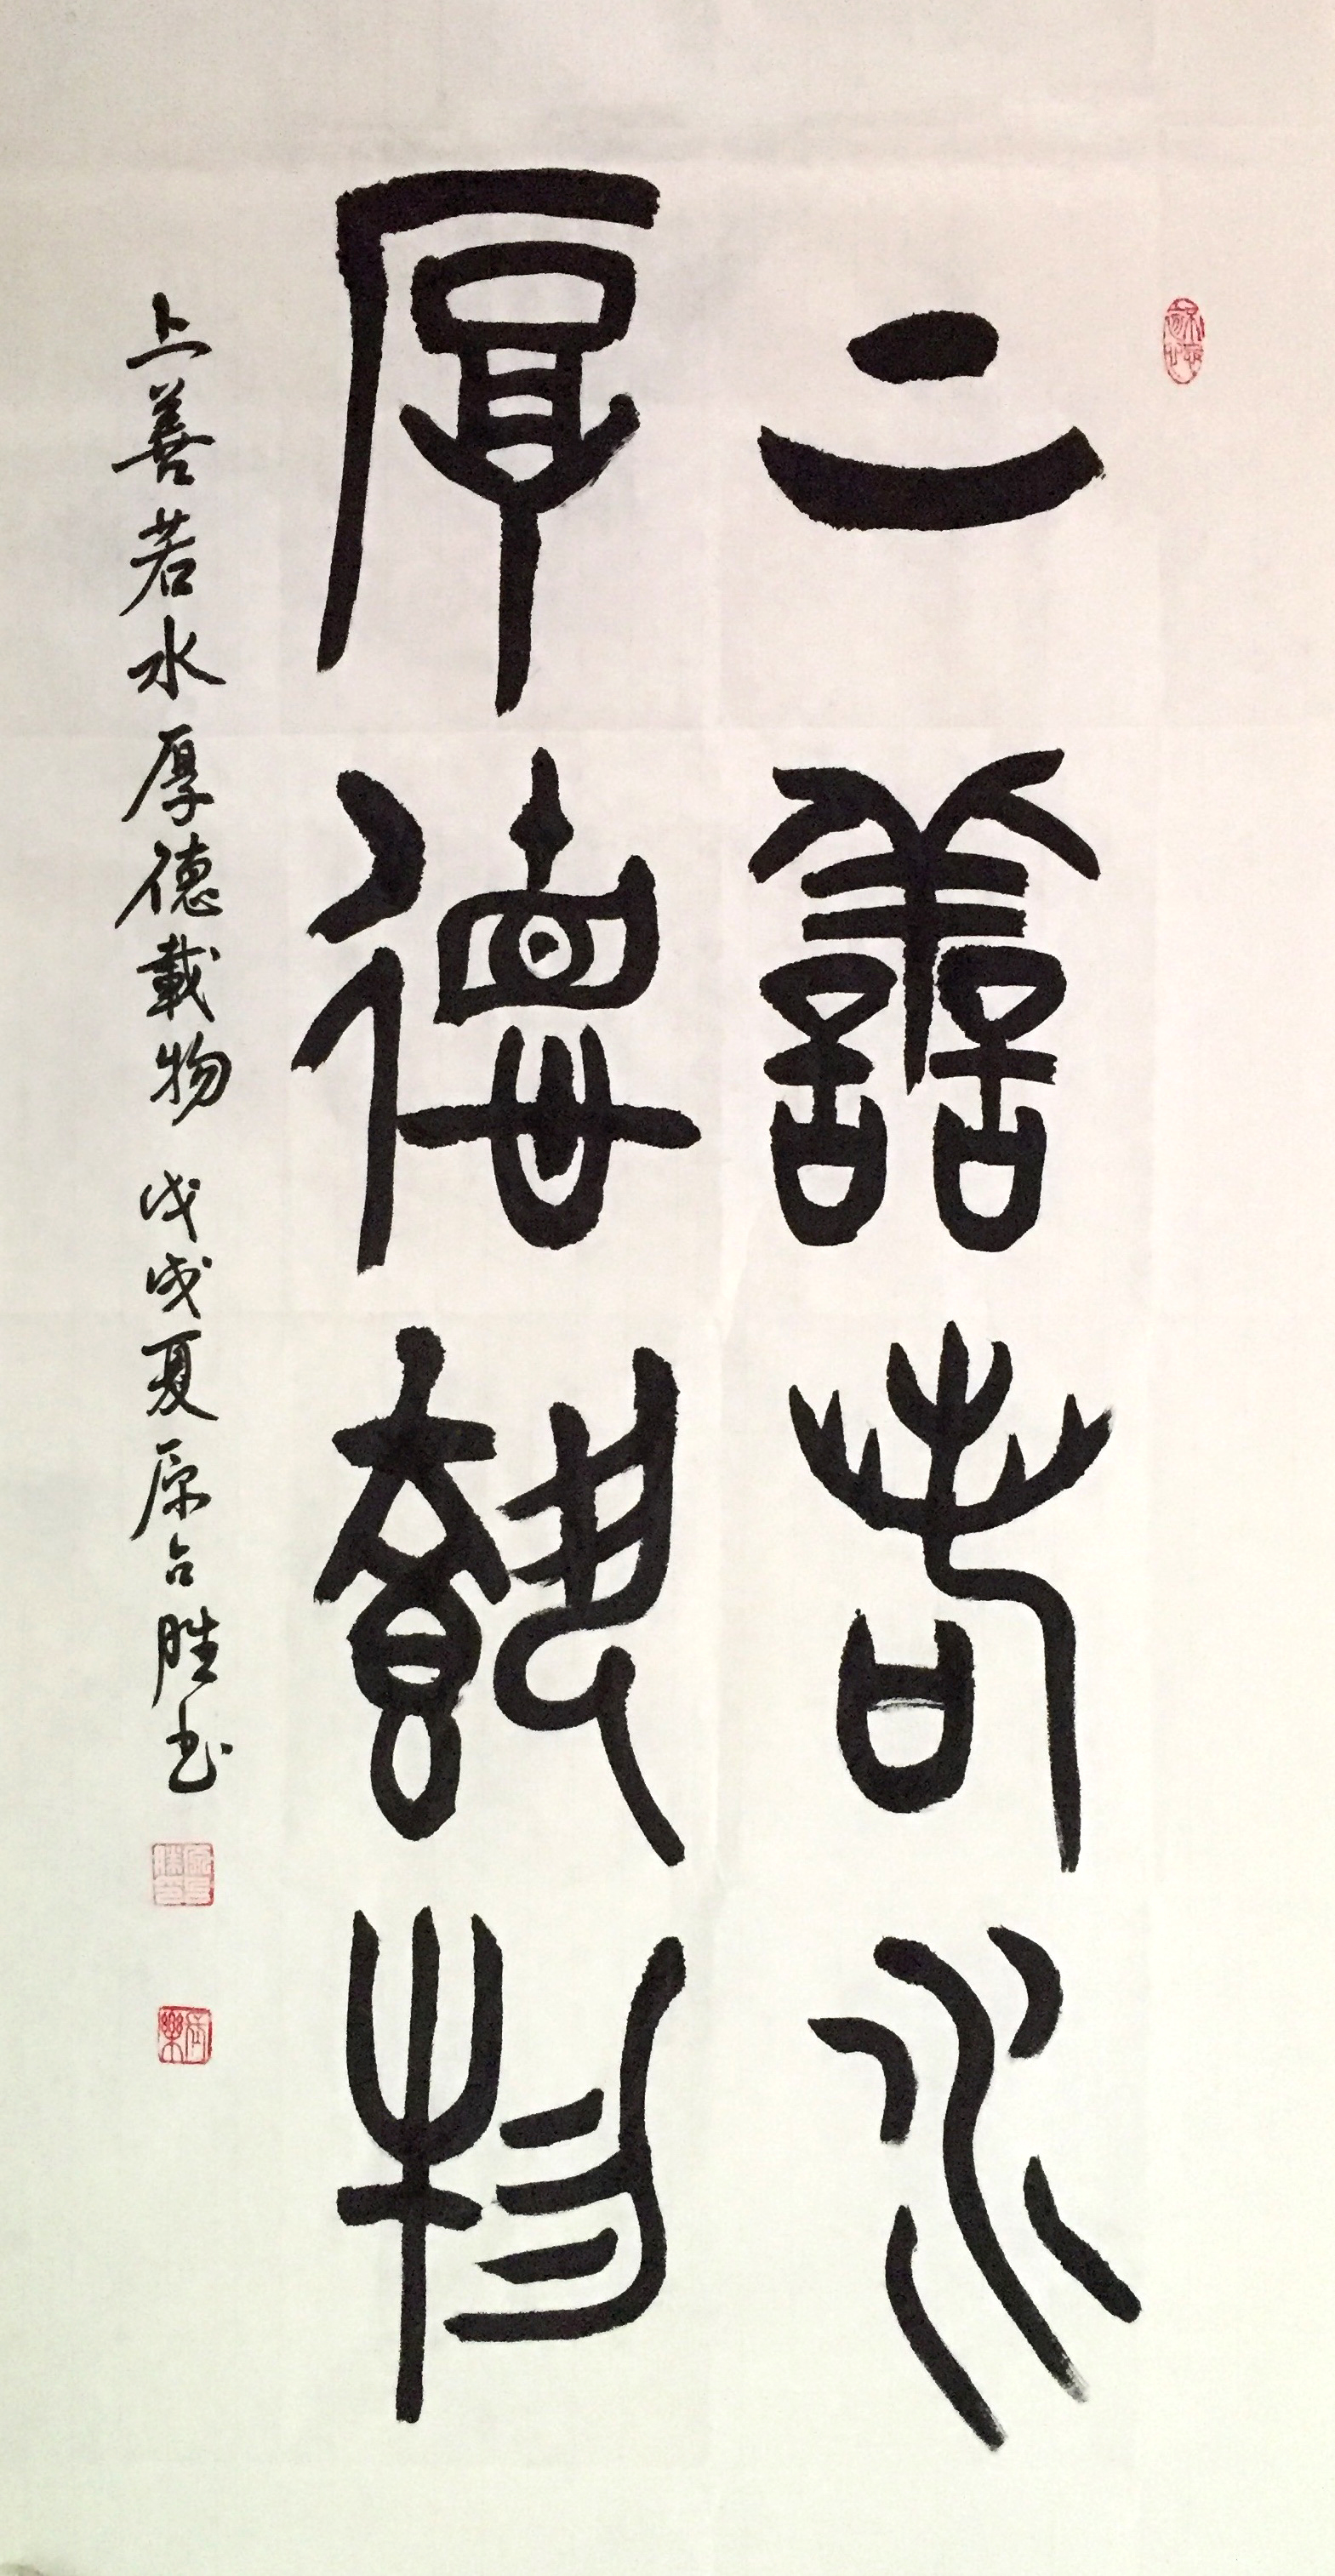 上善若水
厚德載物
上善若水厚德載物 戊戌夏原占胜书